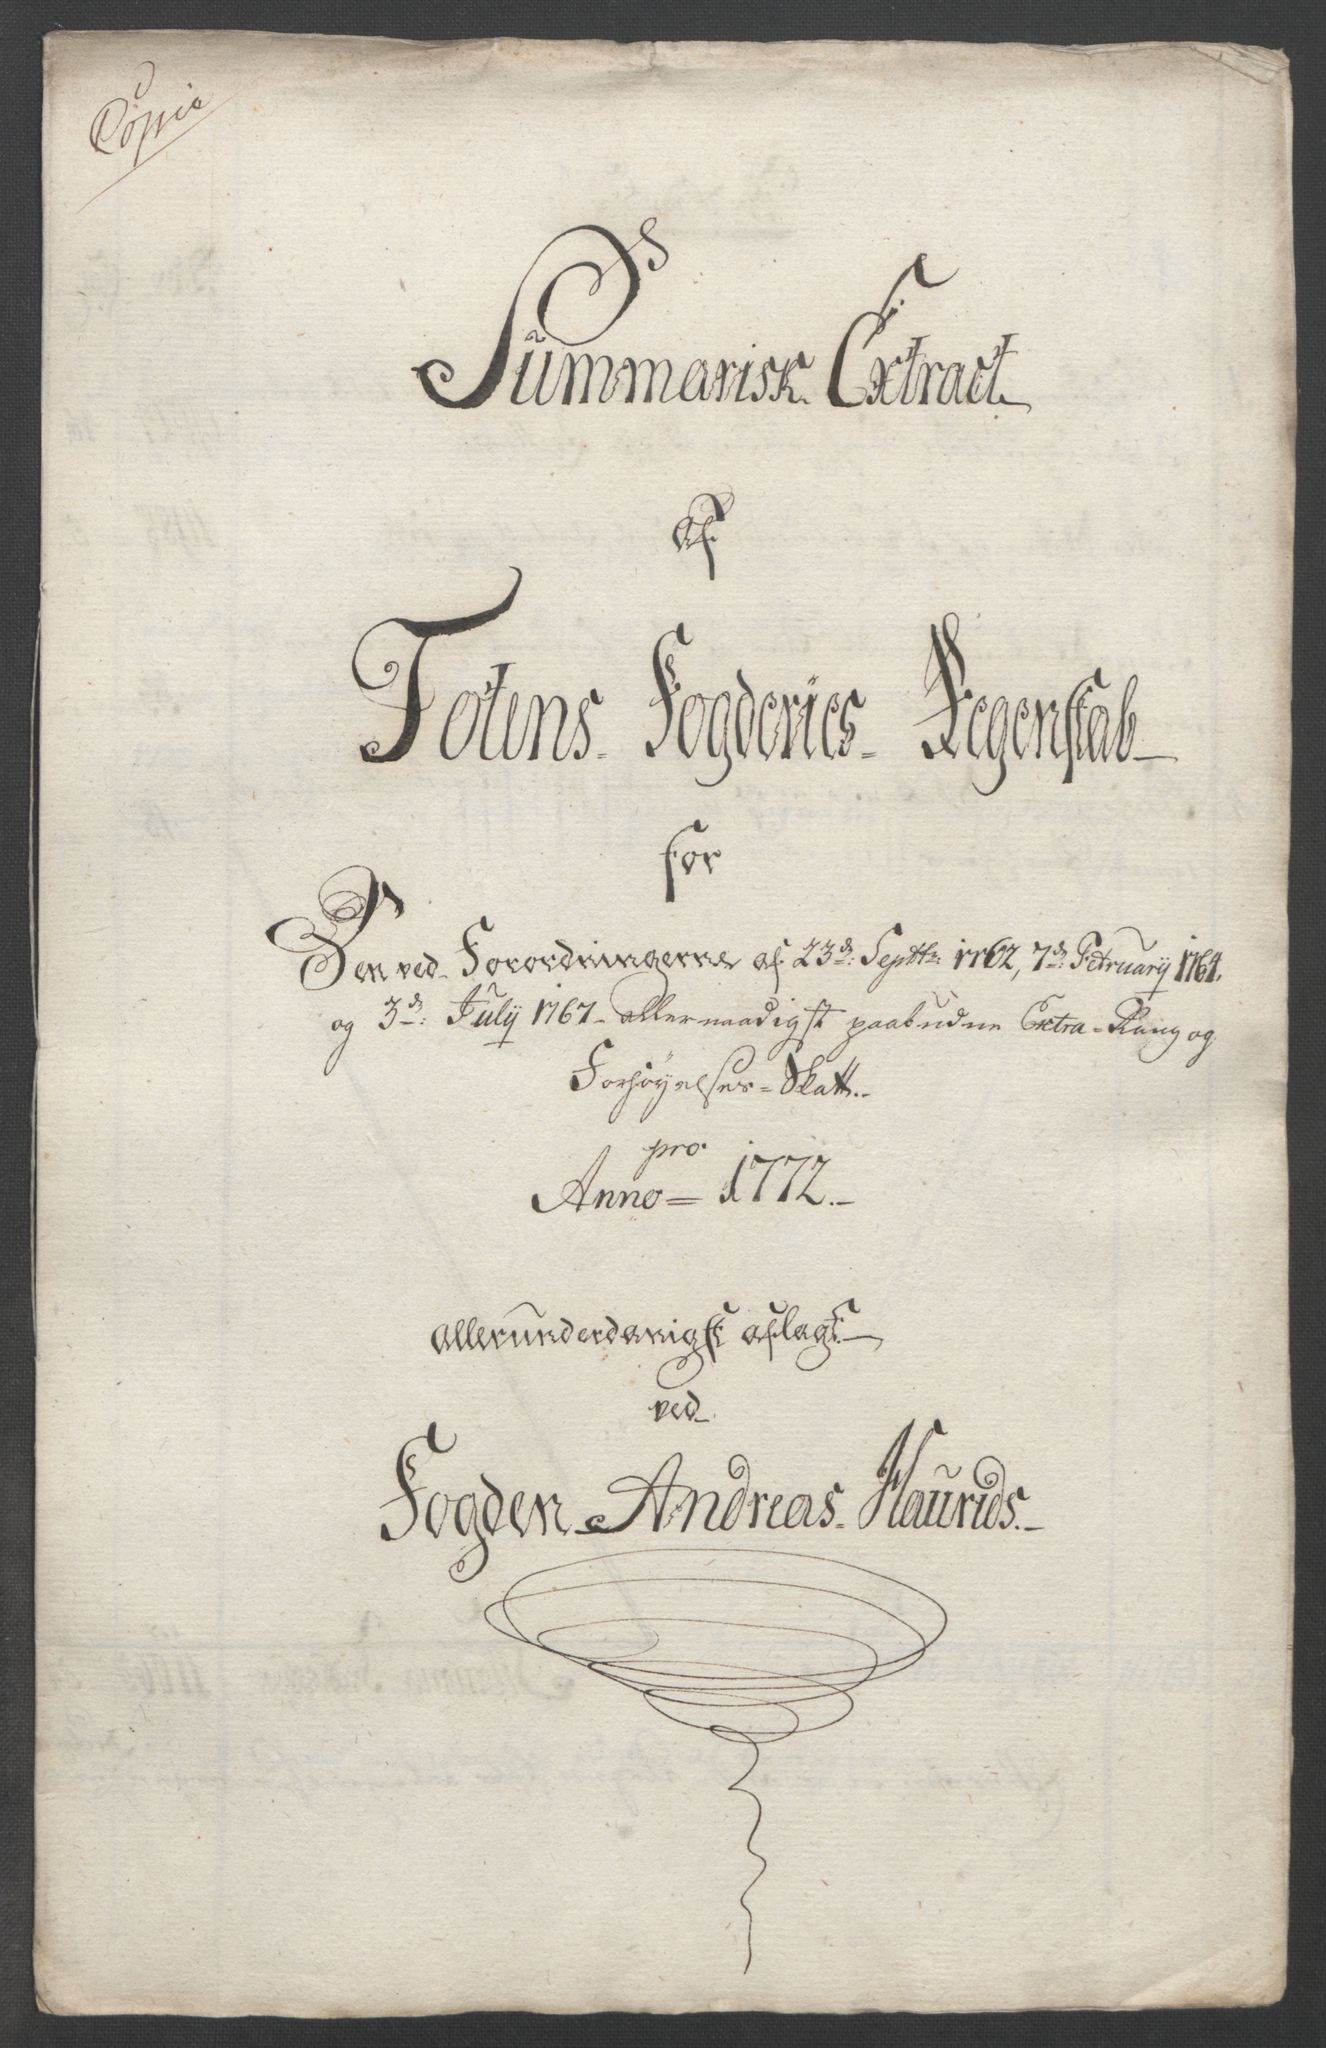 Copia
Summarisk Extract
af
Totens Fogderies Regenskab
for
Den ved Forordningerne af 23de: Septbr: 1762, 7de: Februarij 1764.
og 3de: Julij 1767 allernaadigst paabudne Extra- Rang og
Forhøyelses-Skatt.
pro
Anno 1772.
allerunderdanigst aflagt
ved
Fogden Andreas Flaurids.